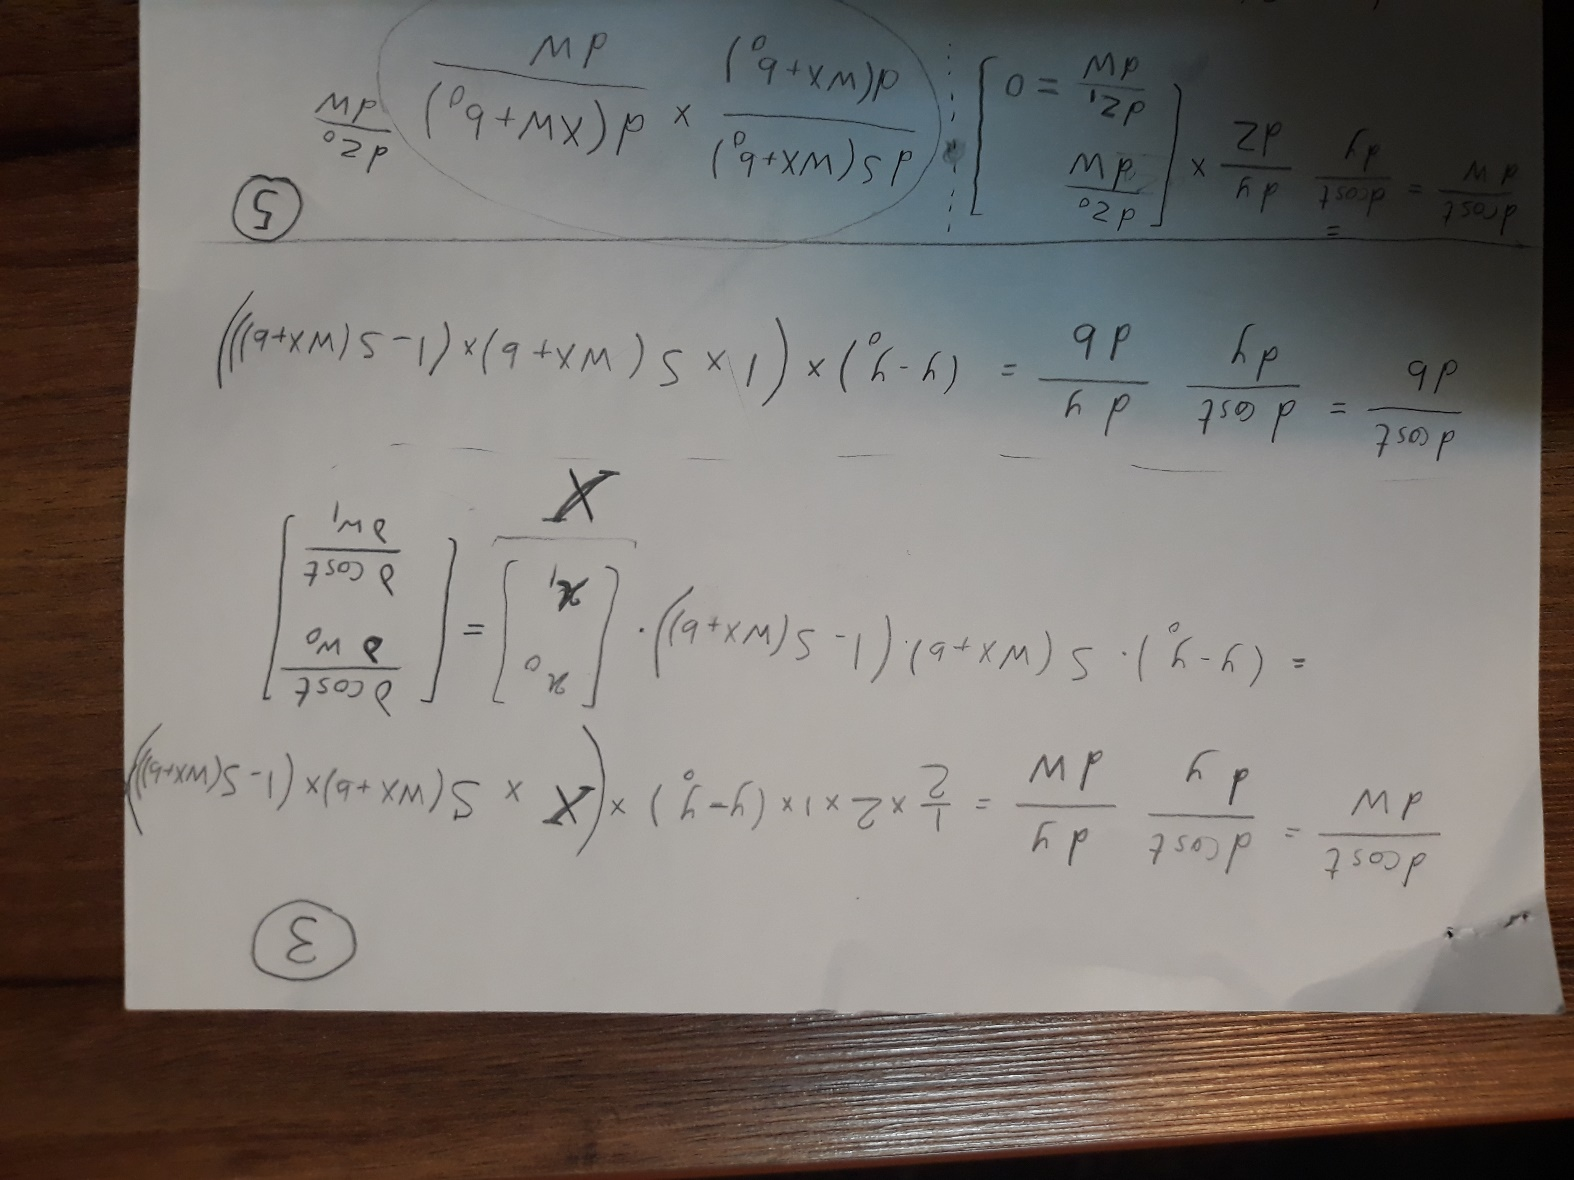 3
dcost/dW = dcost/dy dy/dW = 1/2 × 2 × 1 × (y-y₀) × (X × S(WX+b) × (1-S(WX+b)))
= (y-y₀) · S(WX+b) · (1-S(WX+b)) · [x₀ x₁] = [∂cost/∂w₀ ∂cost/∂w₁]
X
dcost/db = dcost/dy dy/db = (y-y₀) × (1 × S(WX+b) × (1-S(WX+b)))
5
dcost/dW = dcost/dy dy/dZ × [dz₀/dW dz₁/dW = 0] dS(WX+b₀)/d(WX+b₀) × d(XW+b₀)/dW dz₀/dW